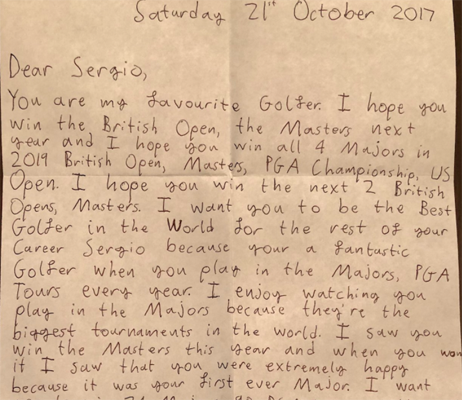 Saturday 21st October 2017
Dear Sergio,
You are my favourite Golfer. I hope you
win the British Open, the Masters next
year and I hope you win all 4 Majors in
2019 British Open, Masters, PGA Championship, US
Open. I hope you win the next 2 British
Opens, Masters. I want you to be the Best
Golfer in the World for the rest of your
Career Sergio because your a fantastic
Golfer when you play in the Majors, PGA
Tours every year. I enjoy watching you
play in the Majors because they're the
biggest tournaments in the world. I saw you
win the Masters this year and when you won
it I saw that you were extremely happy
because it was your first ever Major. I want